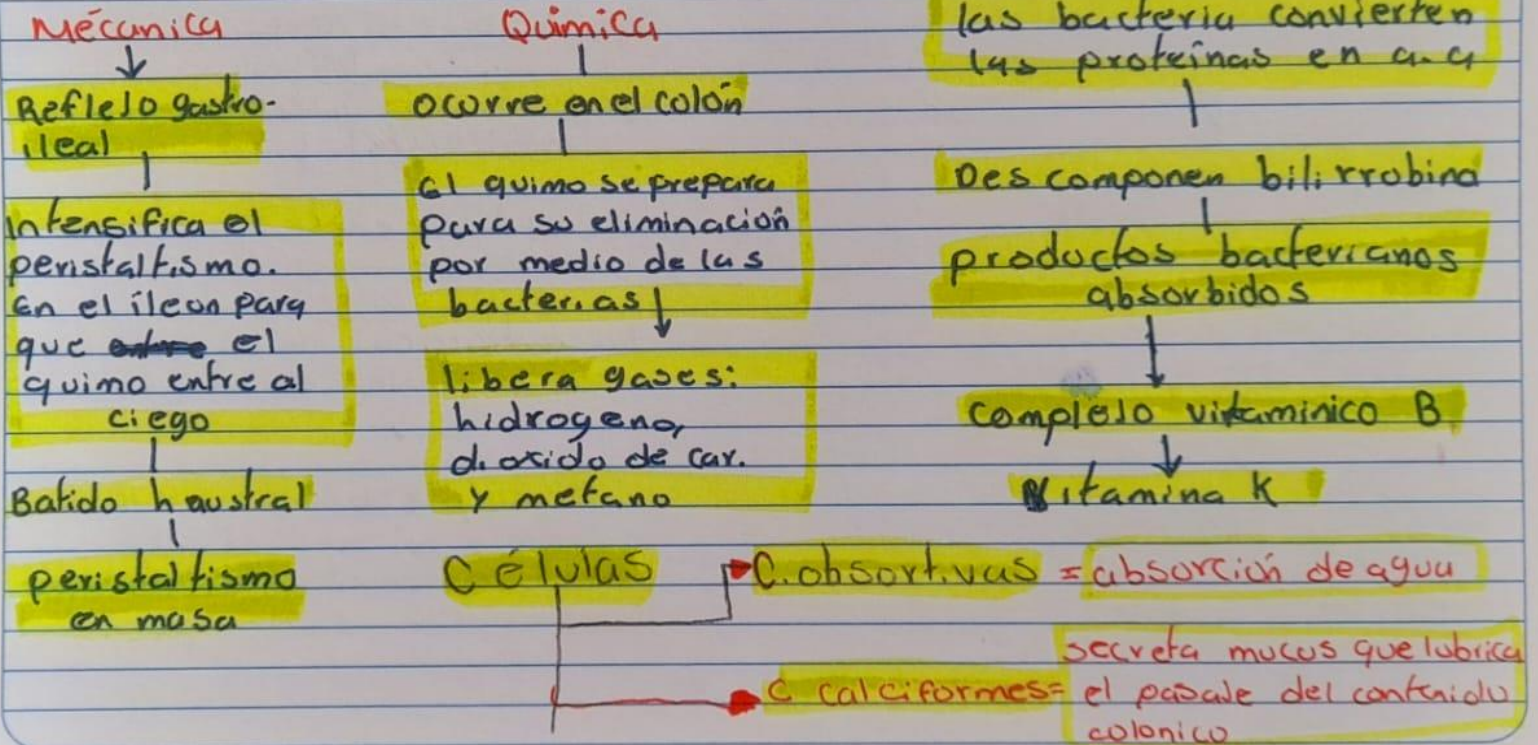 Mécanica
↓
Reflejo gastro-
ileal
Intensifica el
peristaltismo.
en el íleon para
que el
quimo entre al
ciego
Batido haustral
peristaltismo
en masa
Quimica
ocurre en el colón
El quimo se prepara
para su eliminación
por medio de las
bacterias
libera gases:
hidrogeno,
dioxido de car.
y metano
las bacteria convierten
las proteínas en a.a
Descomponen bilirrobina
productos bacterianos
absorbidos
Complejo vitaminico B
Vitamina K
Células
C. absortivas = absorción de agua
C calciformes = secreta mucus que lubrica
el pasaje del contenido
colonico